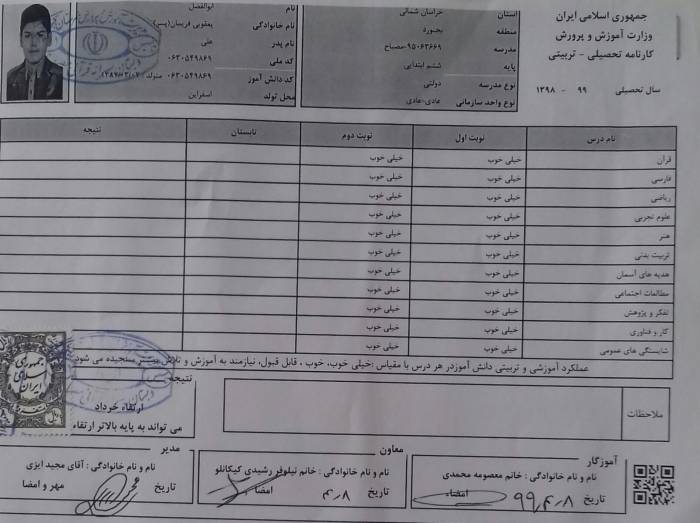 جمهوری اسلامی ایران
وزارت آموزش و پرورش
کارنامه تحصیلی - تربیتی
سال تحصیلی ۹۹ - ۱۳۹۸
استان خراسان شمالی
منطقه بجنورد
مدرسه ۹۵۰۶۳۶۶۹-مصباح
پایه ششم ابتدایی
نوع مدرسه دولتی
نوع واحد سازمانی عادی-عادی
نام ابوالفضل
نام خانوادگی یعقوبی فریمان(پسر)
نام پدر علی
کد ملی ۰۶۳۰۵۴۹۸۶۹
کد دانش آموز ۰۶۳۰۵۴۹۸۶۹ متولد:
محل تولد اسفراین
نام درس نوبت اول نوبت دوم تابستان نتیجه
قرآن خیلی خوب خیلی خوب
فارسی خیلی خوب خیلی خوب
ریاضی خیلی خوب خیلی خوب
علوم تجربی خیلی خوب خیلی خوب
هنر خیلی خوب خیلی خوب
تربیت بدنی خیلی خوب خیلی خوب
هدیه های آسمان خیلی خوب خیلی خوب
مطالعات اجتماعی خیلی خوب خیلی خوب
تفکر و پژوهش خیلی خوب خیلی خوب
کار و فناوری خیلی خوب خیلی خوب
شایستگی های عمومی خیلی خوب خیلی خوب
عملکرد آموزشی و تربیتی دانش آموزدر هر درس با مقیاس :خیلی خوب، خوب ، قابل قبول، نیازمند به آموزش و تلاش بیشتر سنجیده می شود
ملاحظات
نتیجه
ارتقاء خرداد
می تواند به پایه بالاتر ارتقاء
جمهوری
اسلامی
ایران
آموزگار
نام و نام خانوادگی : خانم معصومه محمدی
تاریخ ۹۹،۴،۸ امضاء
معاون
نام و نام خانوادگی : خانم نیلوفر رشیدی کیکانلو
تاریخ ۴،۸ امضا
مدیر
نام و نام خانوادگی : آقای مجید ایزی
تاریخ مهر و امضا